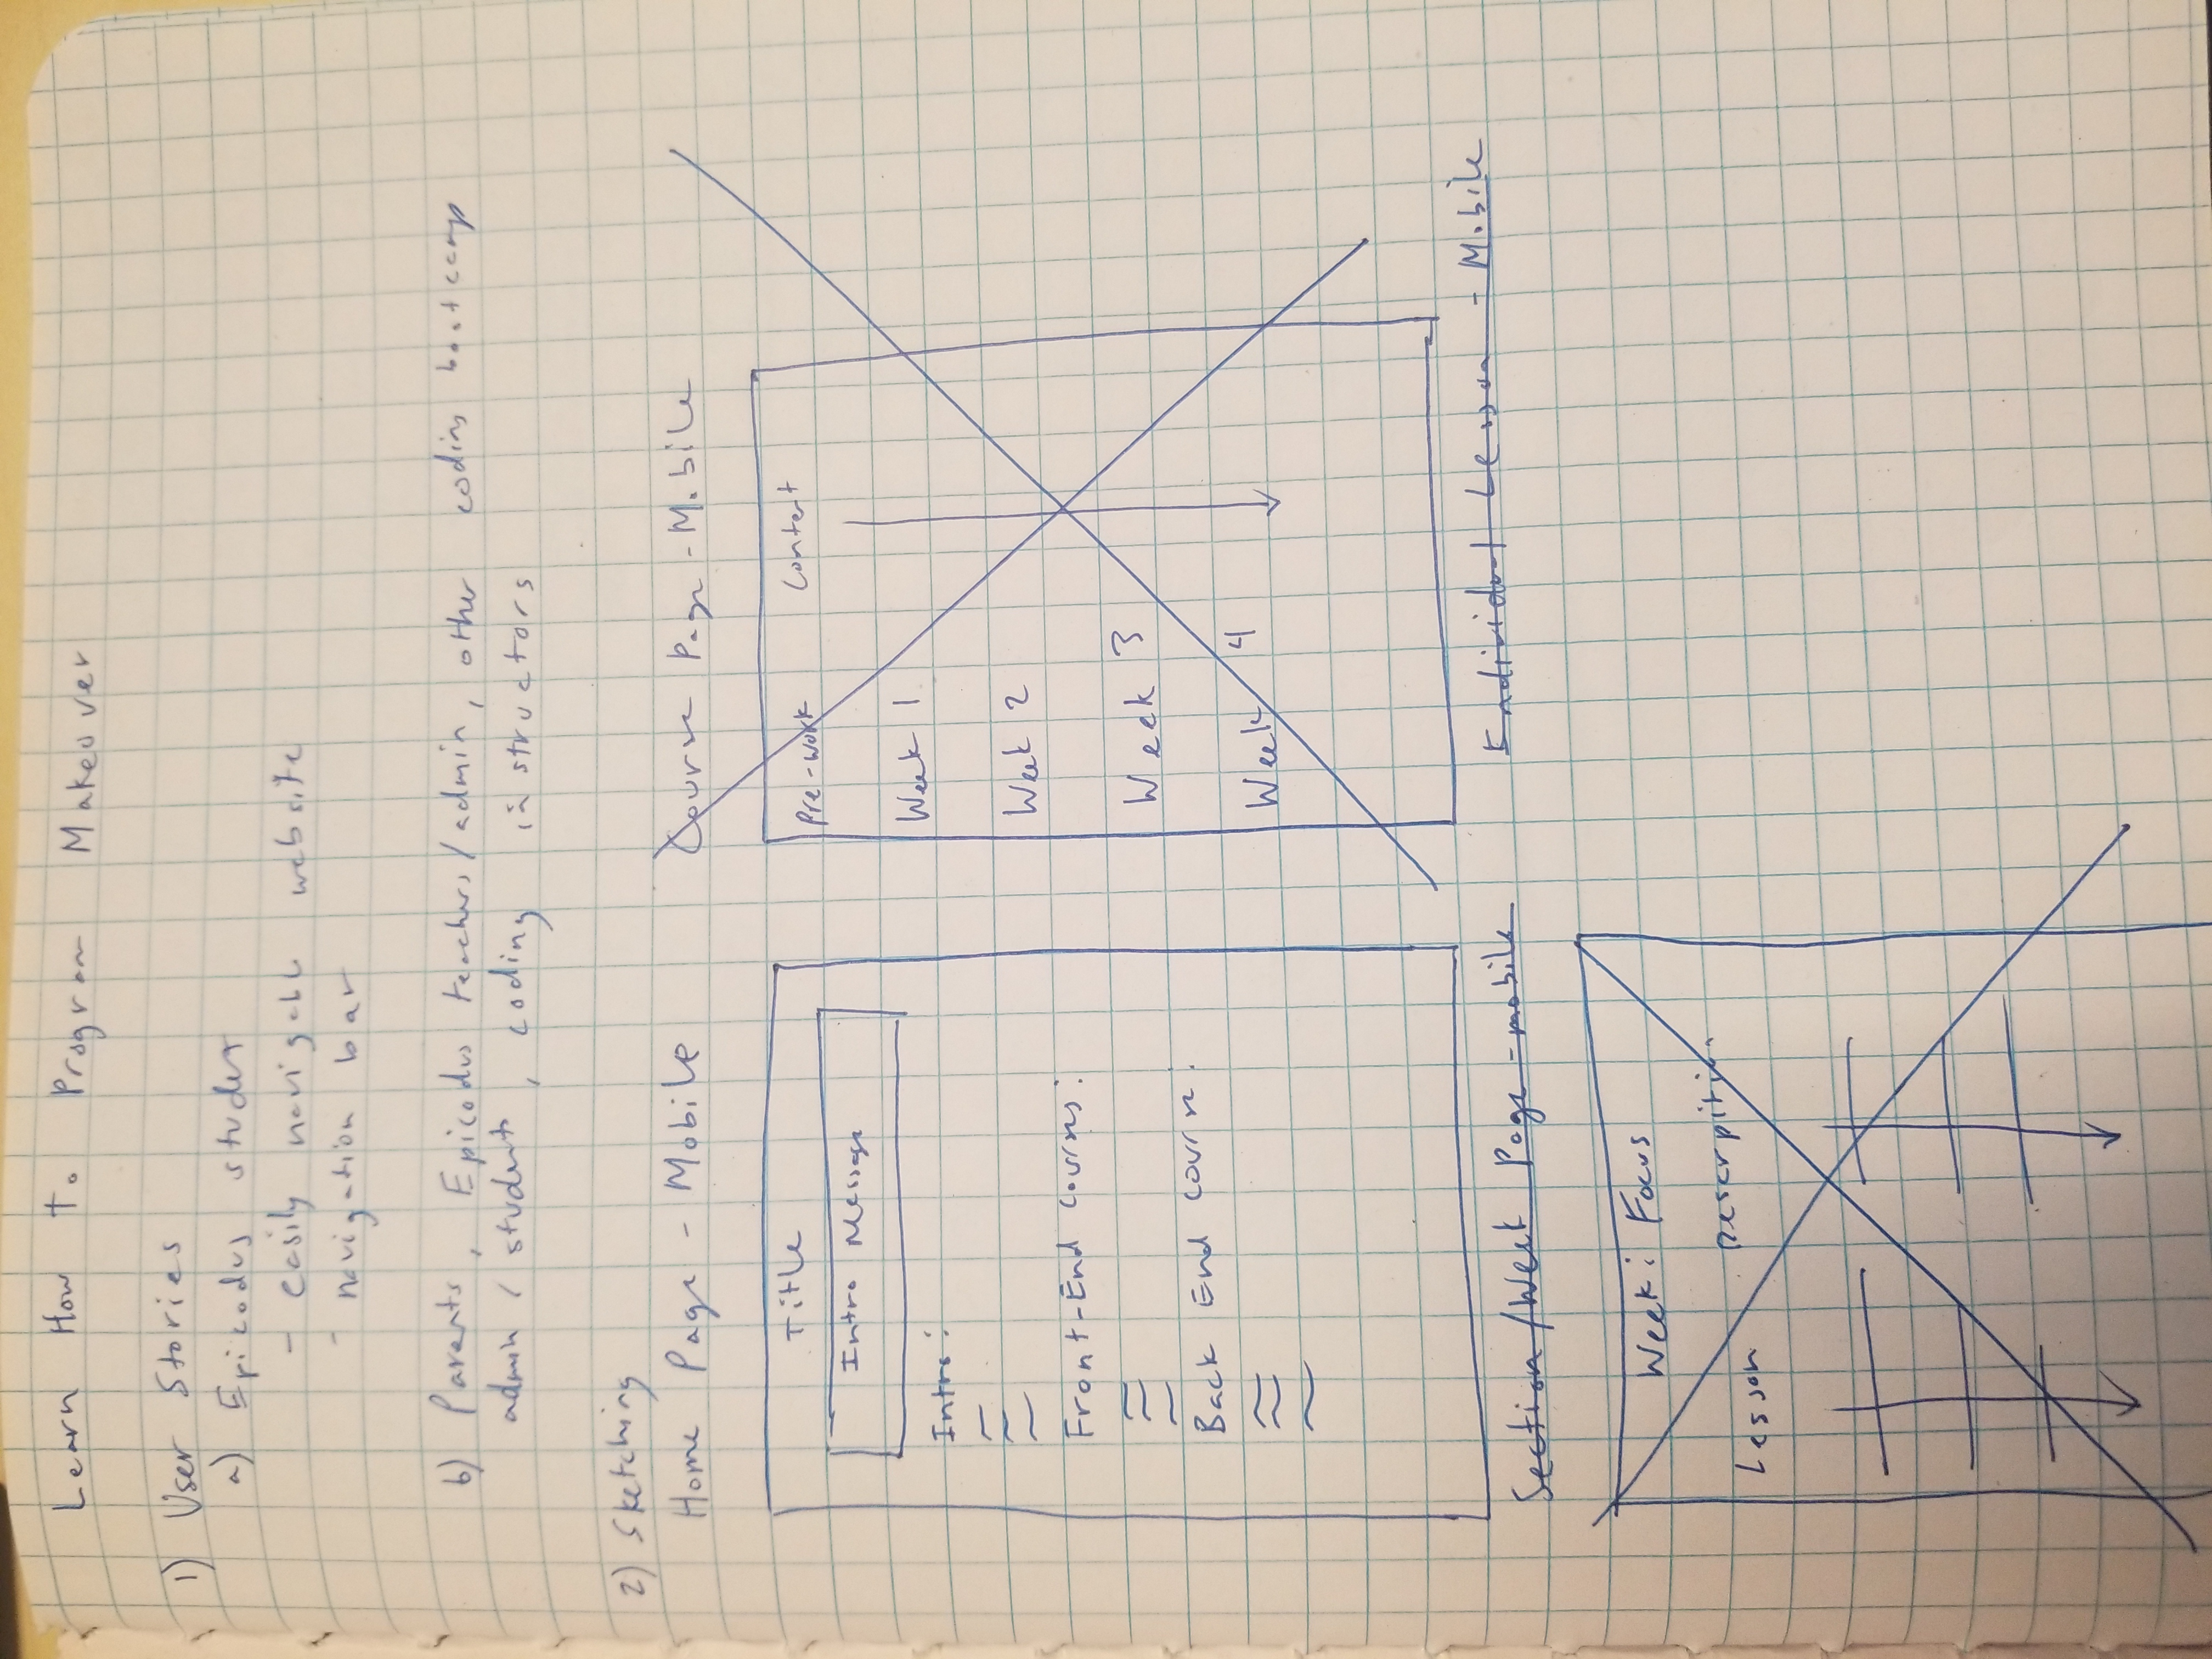 Learn How To Program Makeover
1) User Stories
a) Epicodus student
- easily navigable website
- navigation bar
b) Parents, Epicodus teachers/admin, other coding bootcamp
admin / students, coding instructors
2) Sketching
Home Page - Mobile
Title
Intro Message
Intro:
Front-End Courses:
Back End Courses:
Course Page - Mobile
Pre-work Content
Week 1
Week 2
Week 3
Week 4
Section/Week Page - mobile
Individual Lesson - Mobile
Week: Focus
Lesson Descrpition